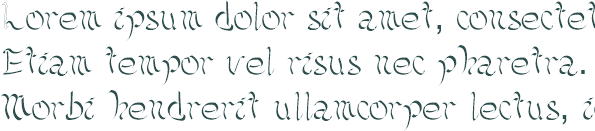 Lorem ipsum dolor sit amet, consectet
Etiam tempor vel risus nec pharetra.
Morbi hendrerit ullamcorper lectus, i